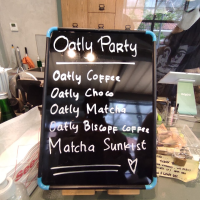 Oatly Party
Oatly Coffee
Oatly Choco
Oatly Matcha
Oatly Biscoff Coffee
Matcha Sunkist